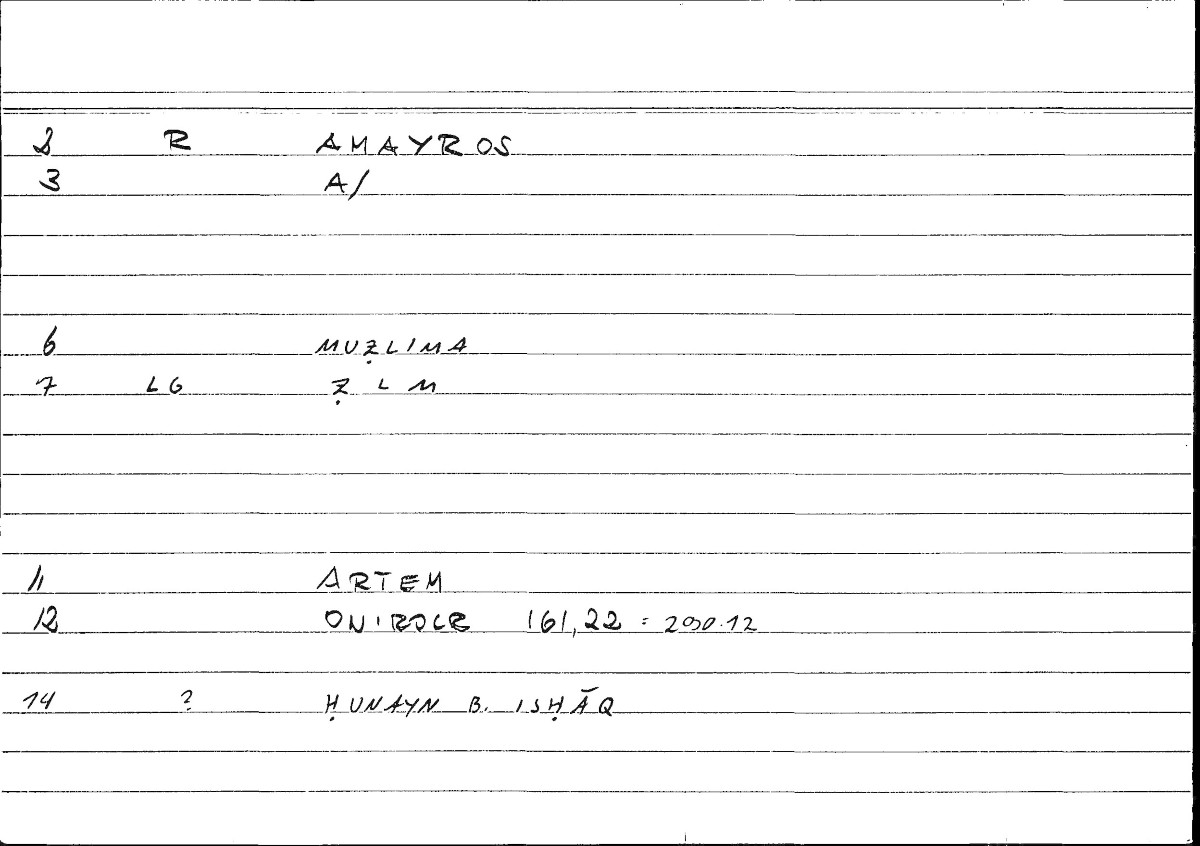 2 R AMAYROS
3 A/
6 MUẒLIMA
7 LG Ẓ L M
11 ARTEM
12 ONIROCR 161,22 = 290.12
14 ? ḤUNAYN B. ISḤĀQ